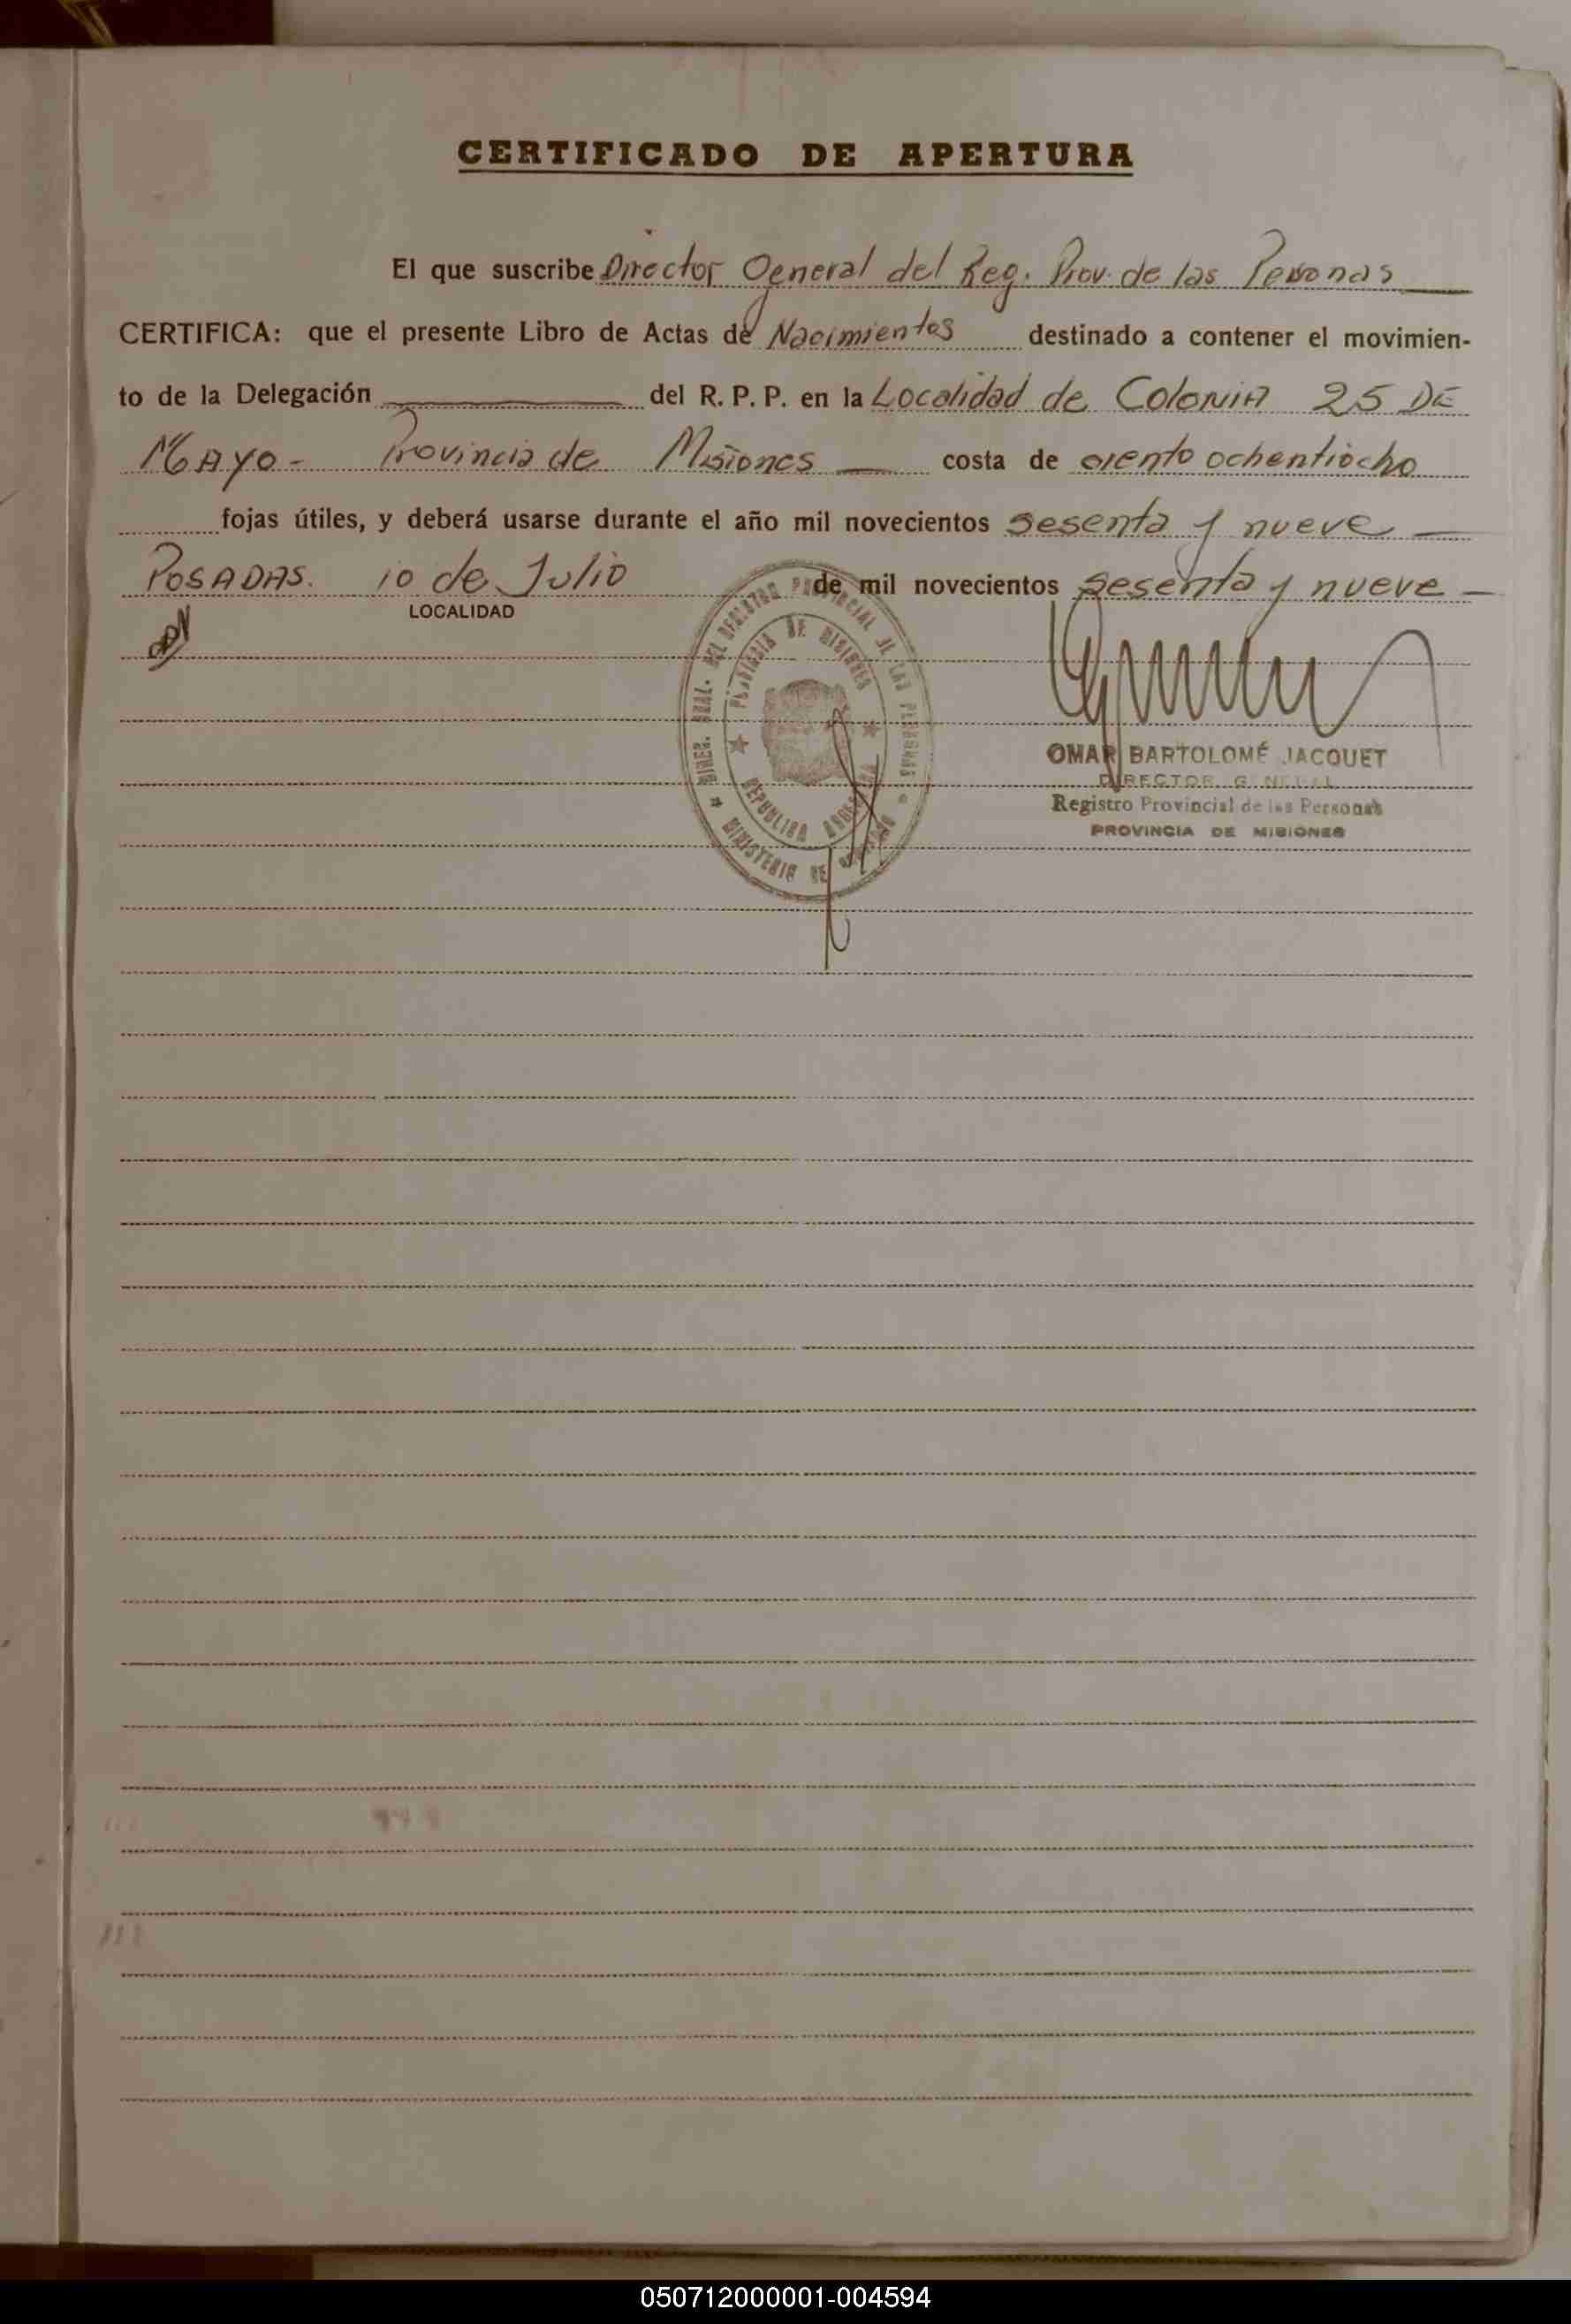 CERTIFICADO DE APERTURA
El que suscribe Director General del Reg. Prov. de las Personas
CERTIFICA: que el presente Libro de Actas de Nacimientos destinado a contener el movimien-
to de la Delegación del R. P. P. en la Localidad de Colonia 25 DE
MAYO - Provincia de Misiones costa de ciento ochentiocho
fojas útiles, y deberá usarse durante el año mil novecientos sesenta y nueve
POSADAS. 10 de Julio de mil novecientos sesenta y nueve
LOCALIDAD
DIREC. GRAL. DEL REGISTRO PROVINCIAL DE LAS PERSONAS
PROVINCIA DE MISIONES
REPUBLICA
MINISTERIO DE
OMAR BARTOLOMÉ JACQUET
DIRECTOR GENERAL
Registro Provincial de las Personas
PROVINCIA DE MISIONES
050712000001-004594